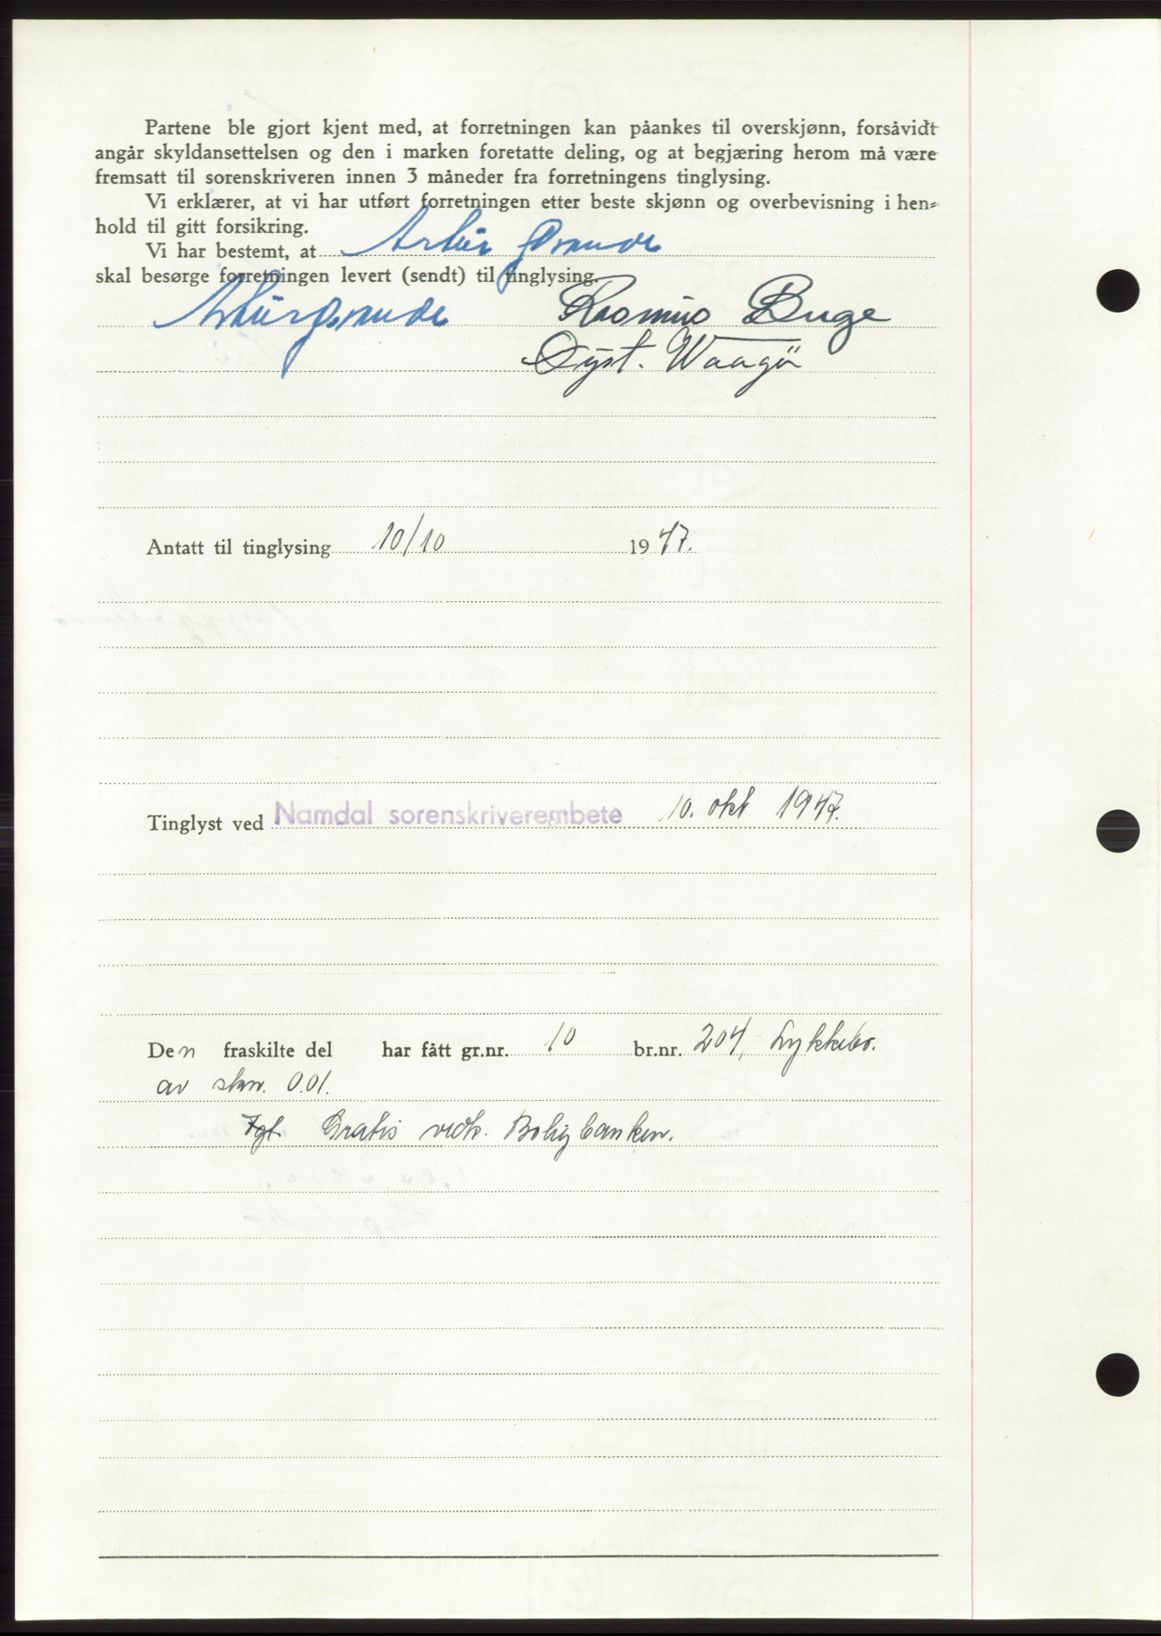 Partene ble gjort kjent med, at forretningen kan påankes til overskjønn, forsåvidt
angår skyldansettelsen og den i marken foretatte deling, og at begjæring herom må være
fremsatt til sorenskriveren innen 3 måneder fra forretningens tinglysing.
Vi erklærer, at vi har utført forretningen etter beste skjønn og overbevisning i hen-
hold til gitt forsikring.
Vi har bestemt, at Artur
skal besørge forretningen levert (sendt) til tinglysing.
Artur Rasmus Buge
Øyst. Waagø
Antatt til tinglysing 10/10 1947.
Tinglyst ved Namdal sorenskriverembete 10. okt 1947.
Den fraskilte del har fått gr.nr. 10 br.nr. 204, Lykkebo.
av skm. 0.01.
Fgt. Gratis vedk. Boligbanken.